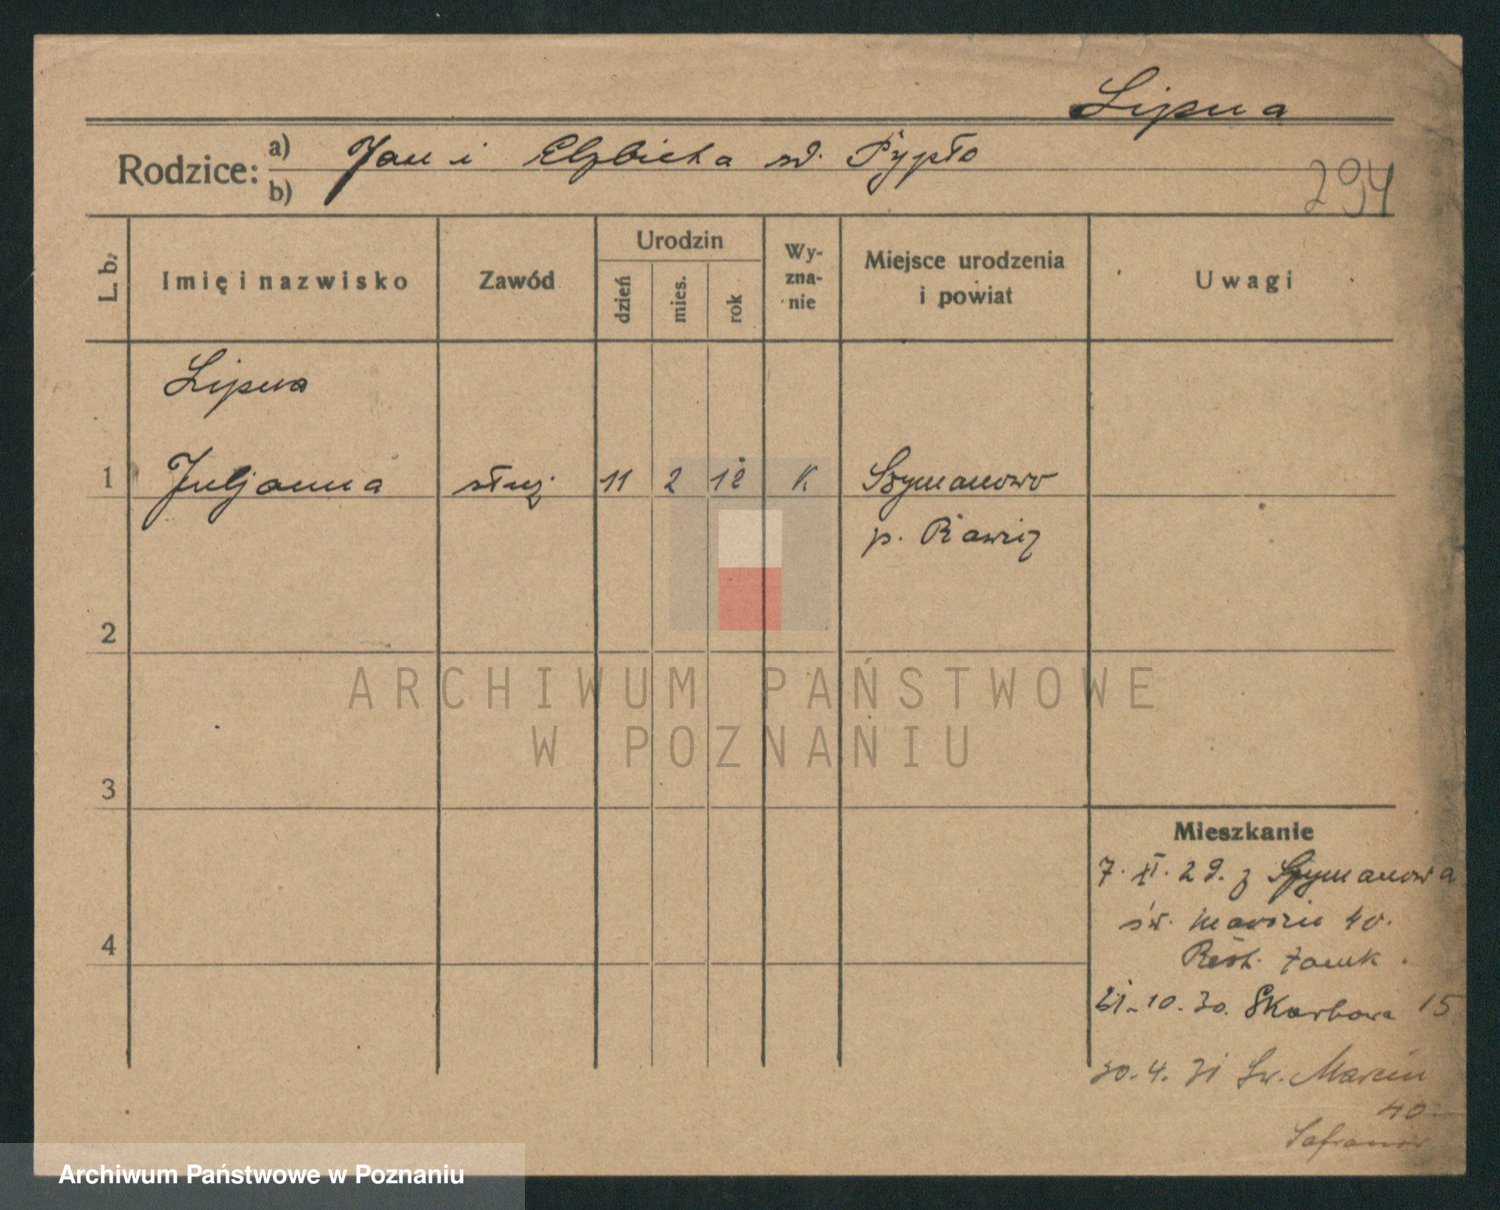 Lipna
Rodzice: a) Jan i Elżbieta zd. Pypło
b)
294
L. b. Imię i nazwisko Zawód Urodzin dzień mies. rok Wyznanie Miejsce urodzenia i powiat Uwagi
Lipna
1 Juljanna służ 11 2 12 K Szymanowo
p. Rawicz
2
ARCHIWUM PAŃSTWOWE
W POZNANIU
3
Mieszkanie
7. XI. 29. z Szymanowa
św. Marcin 40.
4
Zamk.
21.10.30. Skarbowa 15
30.4.31 Św. Marcin
40
Archiwum Państwowe w Poznaniu